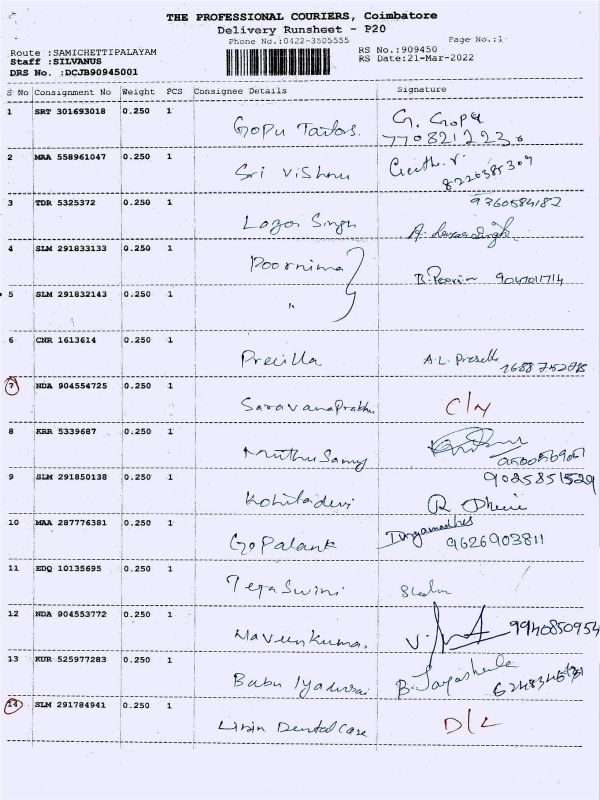 THE PROFESSIONAL COURIERS, Coimbatore
Delivery Runsheet - P20
Phone No.:0422-3505555 Page No.:1
Route :SAMICHETTIPALAYAM RS No.:909450
Staff :SILVANUS RS Date:21-Mar-2022
DRS No. :DCJB90945001
S No Consignment No Weight PCS Consignee Details Signature
1 SRT 301693018 0.250 1 Gopu Tailors. G. Gopu
2 MAA 558961047 0.250 1 Sri Vishnu
8220385309
3 TDR 5325372 0.250 1 9360584182
Singh
4 SLM 291833133 0.250 1 Poornima
5 SLM 291832143 0.250 1 "
6 CNR 1613614 0.250 1 Precilla A.L.
7 NDA 904554725 0.250 1 Saravana Prabhu C/N
8 KRR 5339687 0.250 1 Muthusamy
9 SLM 291850138 0.250 1 Kohiladevi 9025851529
R
10 MAA 287776381 0.250 1 Gopalank 9626903811
11 EDQ 10135695 0.250 1 Tejaswini
12 NDA 904553772 0.250 1 Naveenkumar. V. 9940850954
13 KUR 525977283 0.250 1 Babu Iyadurai B.
14 SLM 291784941 0.250 1 Dental Care D/L